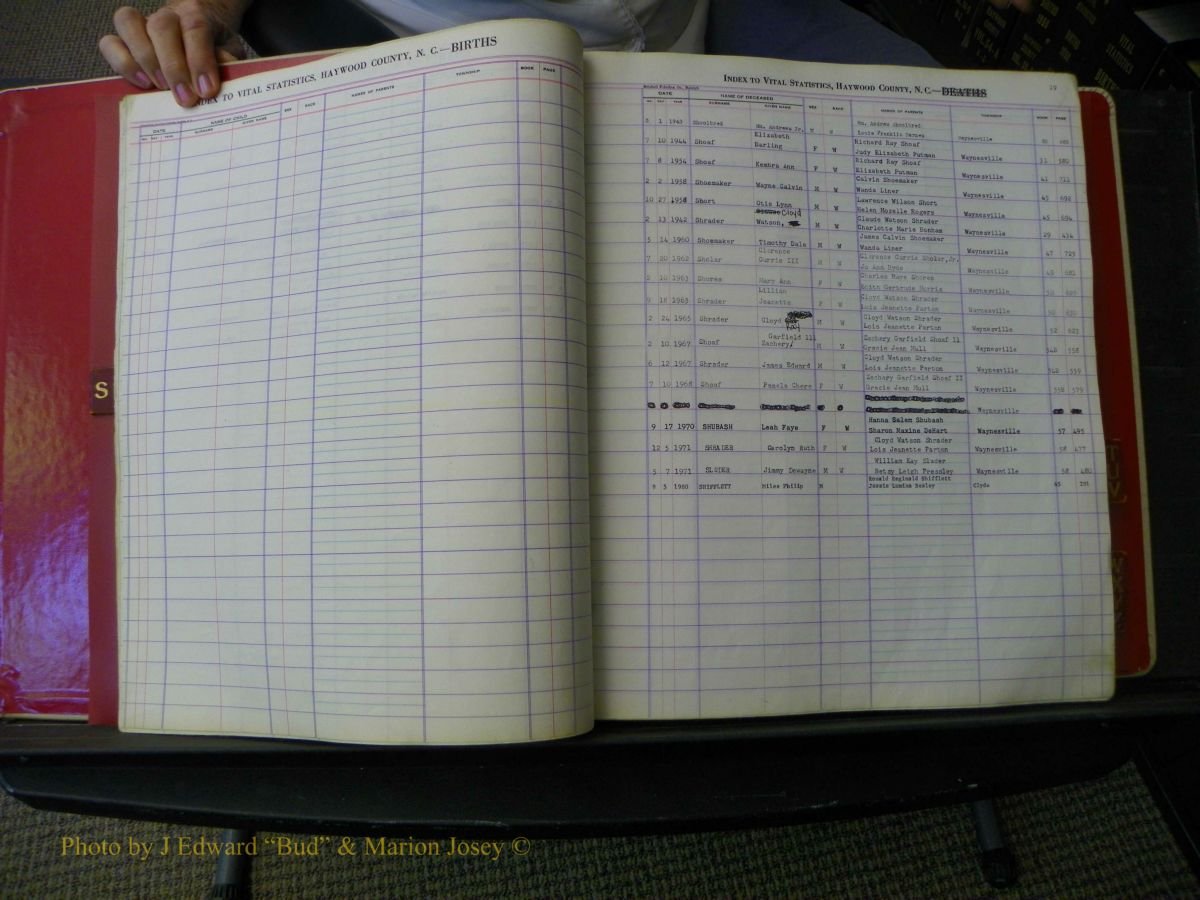 INDEX TO VITAL STATISTICS, HAYWOOD COUNTY, N. C.—BIRTHS
DATE NAME OF CHILD SEX RACE NAMES OF PARENTS TOWNSHIP BOOK PAGE
SURNAME GIVEN NAME
INDEX TO VITAL STATISTICS, HAYWOOD COUNTY, N. C.—DEATHS
19
DATE NAME OF DECEASED SEX RACE NAMES OF PARENTS TOWNSHIP BOOK PAGE
SURNAME GIVEN NAME
8 1 1943 Shooltred Wm. Andrews Jr. M W Wm. Andrew Shooltred
Louie Franklin Barnes Waynesville
7 10 1944 Shoaf Elizabeth Darling F W Richard Ray Shoaf
Judy Elizabeth Putman Waynesville 31 580
7 8 1954 Shoaf Kembra Ann F W Richard Ray Shoaf
Elizabeth Putman Waynesville 41
2 2 1958 Shoemaker Wayne Calvin M W Calvin Shoemaker
Wanda Liner Waynesville 45 692
10 27 1958 Short Otis Lynn M W Lawrence Wilson Short
Helen Mozelle Rogers Waynesville 45 694
2 13 1942 Shrader Watson, Cloyd M W Claude Watson Shrader
Charlotte Marie Bonham Waynesville 29 434
5 14 1960 Shoemaker Timothy Dale M W James Calvin Shoemaker
Wanda Liner Waynesville 47 723
7 20 1962 Sholar Clarence Currie III M W Clarence Currie Sholar, Jr.
Jo Ann Hyde Waynesville 49 681
2 10 1963 Shores Mary Ann F W Charles Rare Shores
Edith Gertrude Morris Waynesville 50
9 18 1963 Shrader Lillian Jeanette F W Cloyd Watson Shrader
Lois Jeanette Parton Waynesville 50
2 24 1965 Shrader Cloyd Roy M W Cloyd Watson Shrader
Lois Jeanette Parton Waynesville 52 623
2 10 1967 Shoaf Garfield III Zachery, M W Zachery Garfield Shoaf II
Gracie Jean Hull Waynesville 54B 558
6 12 1967 Shrader James Edward M W Cloyd Watson Shrader
Lois Jeanette Parton Waynesville 54B 559
7 10 1968 Shoaf Pamela Chere F W Zachary Garfield Shoaf II
Gracie Jean Hull Waynesville 55B 579
Waynesville
9 17 1970 SHUBASH Leah Faye F W Hanna Salem Shubash
Sharon Maxine DeHart Waynesville 57 495
12 5 1971 SHRADER Carolyn Ruth F W Cloyd Watson Shrader
Lois Jeanette Parton Waynesville 58 477
5 7 1971 SLUDER Jimmy Dewayne M W William Kay Sluder
Betsy Leigh Pressley Waynesville 58 480
8 3 1980 SHIFFLETT Miles Philip M Ronald Reginald Shifflett
Clyde
Photo by J Edward “Bud” & Marion Josey ©